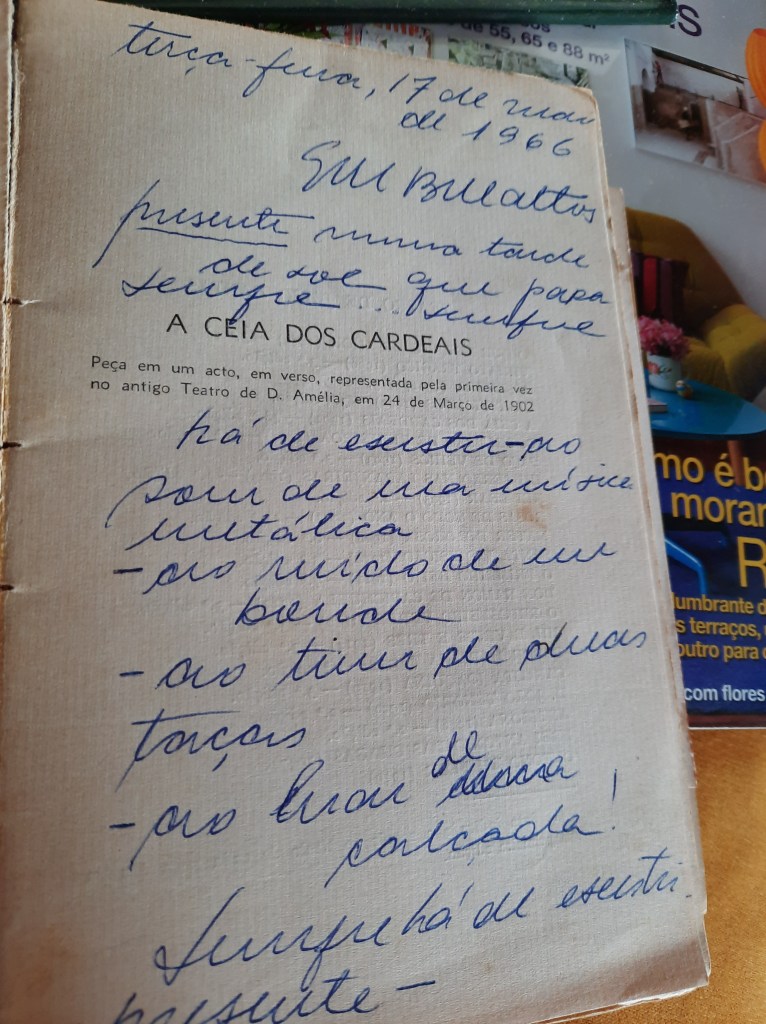 is
de 55, 65 e 88 m²
terça-feira, 17 de maio
de 1966
presente numa tarde
de sol que para
sempre ... sempre
A CEIA DOS CARDEAIS
Peça em um acto, em verso, representada pela primeira vez
no antigo Teatro de D. Amélia, em 24 de Março de 1902
há de existir-ao
som de uma música
metálica
- ao ruído de um
bonde
- ao tinir de duas
taças
- ao luar de
calçada!
Sempre há de existir
presente -
mo é b
morar
R
lumbrante d
s terraços,
outro para
com flores